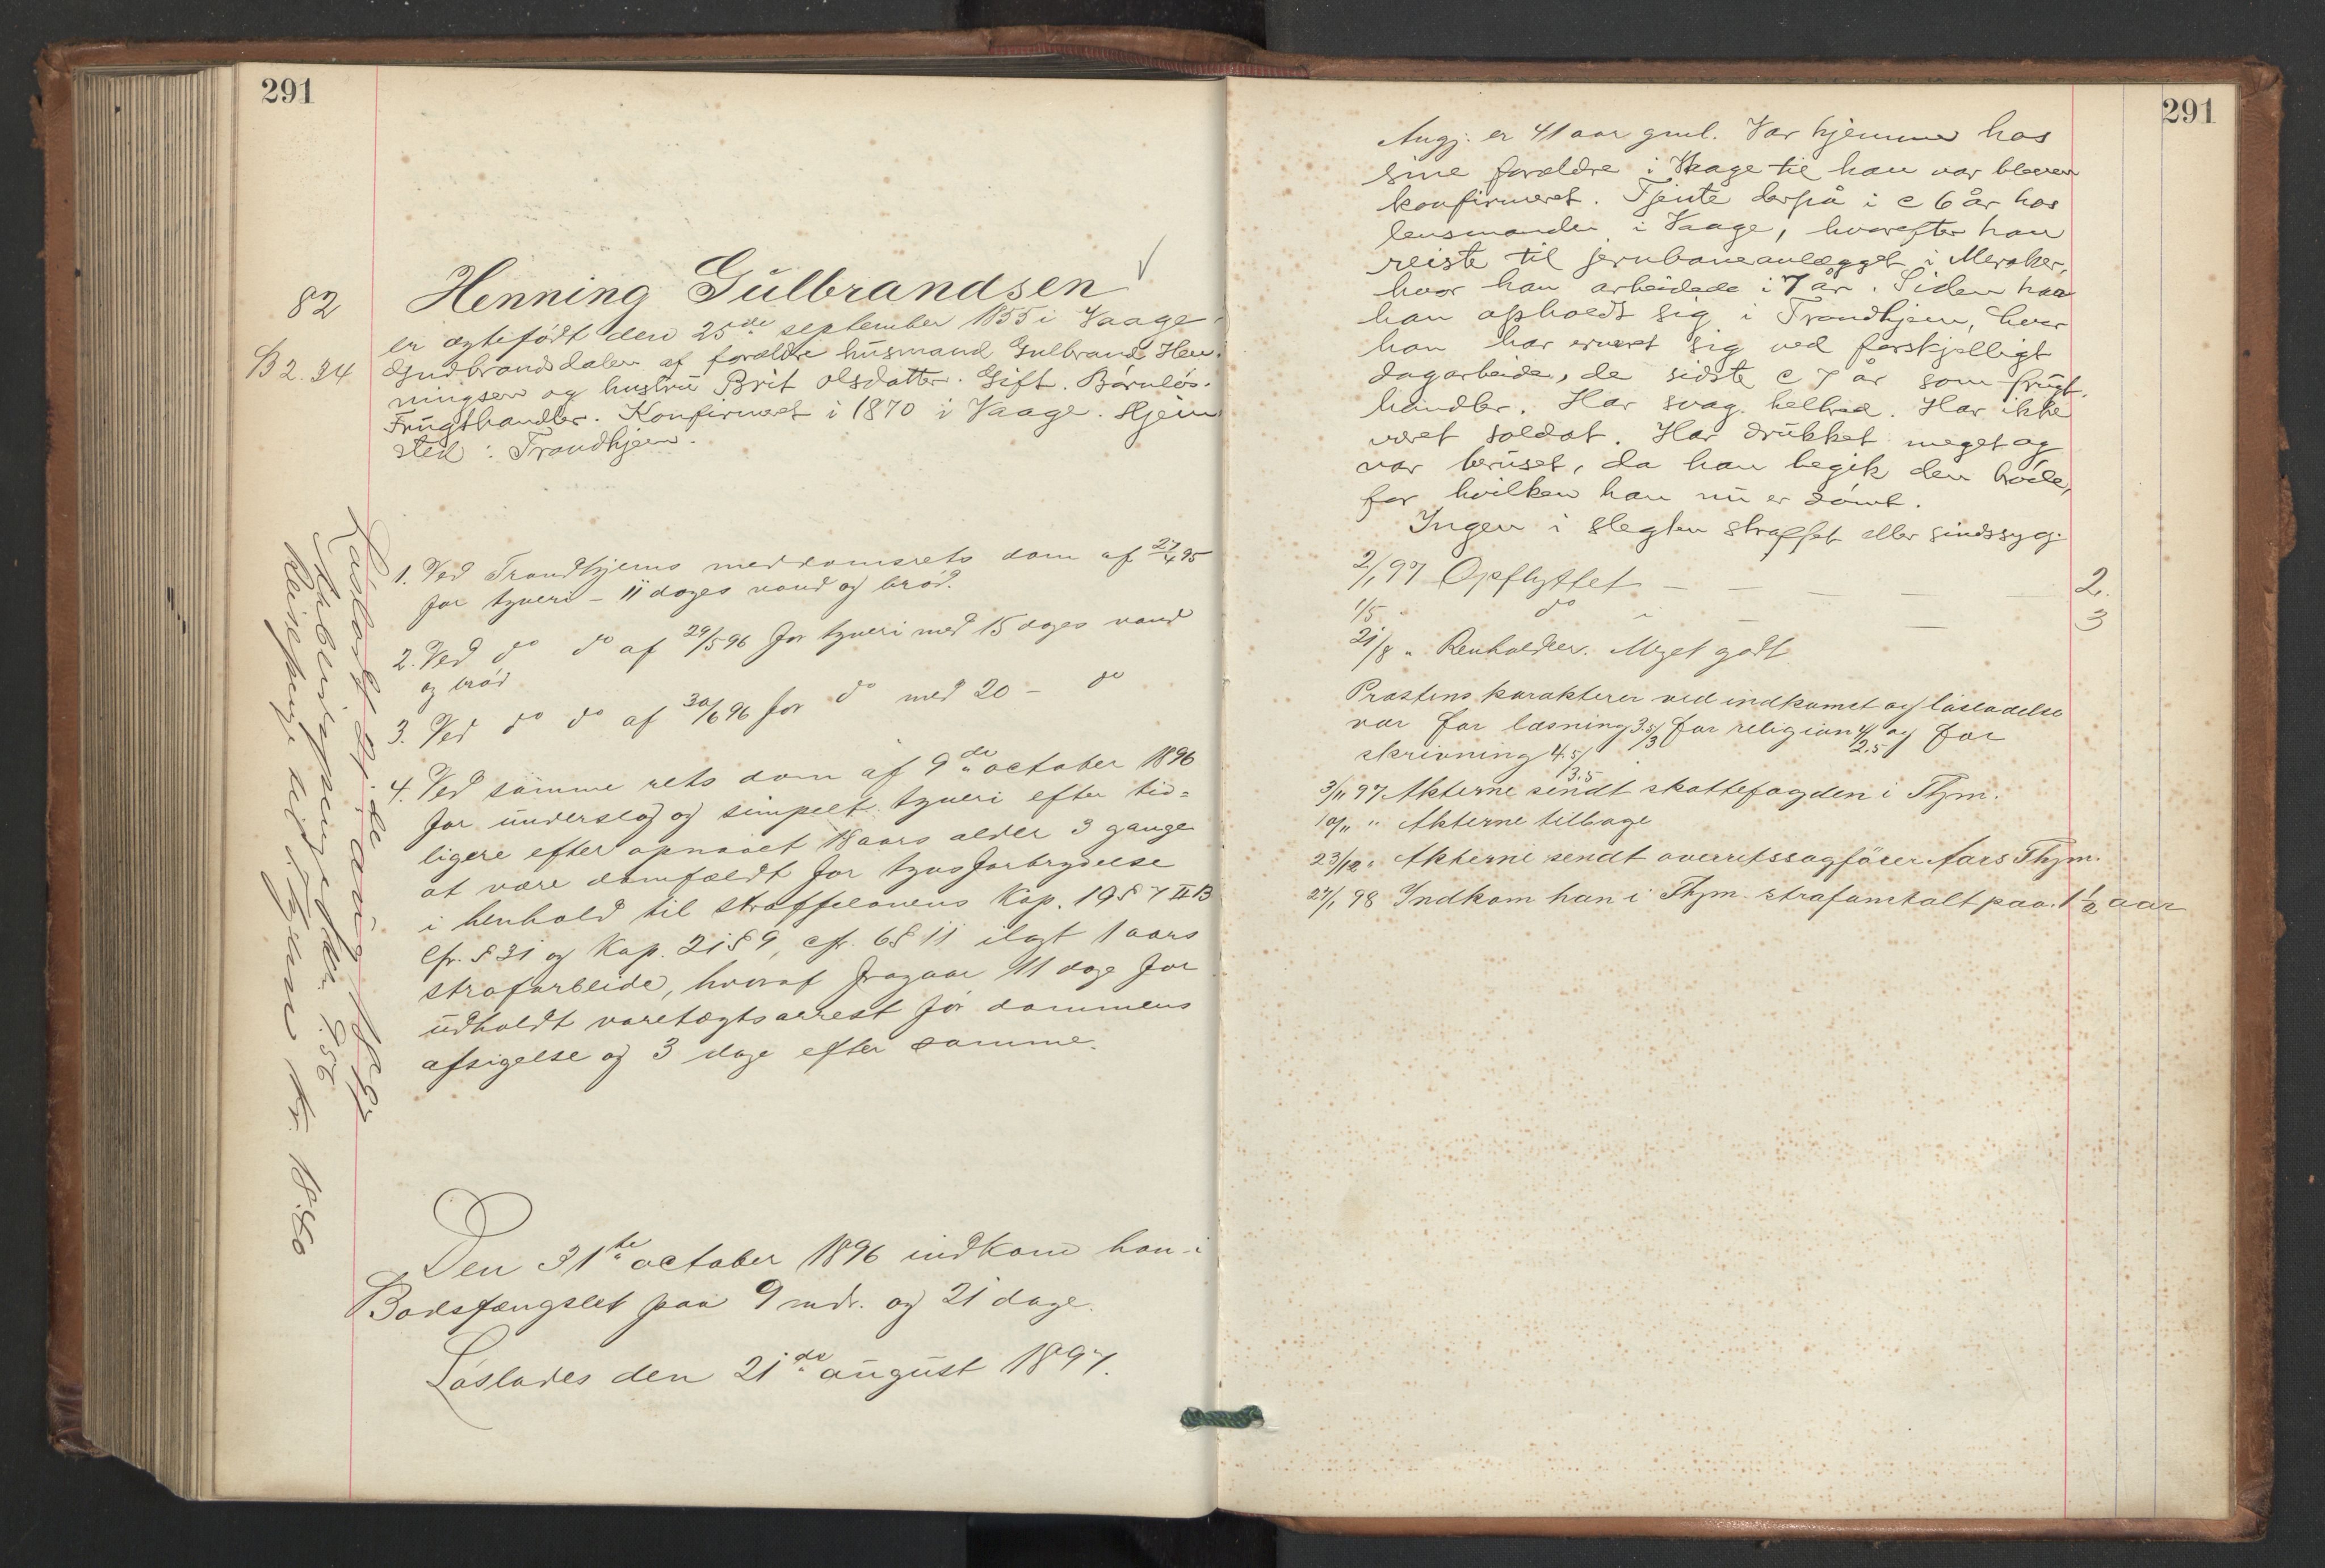 291
82
B 2. 34
Henning Gulbrandsen
er ægtefødt den 25de september 1855 i Vaage
Gudbrandsdalen af forældre husmand Gulbrand Hen-
ningsen og hustru Brit Olsdatter. Gift. Barnløs.
Frugthandler. Konfirmeret i 1870 i Vaage. Hjem
sted: Trondhjem.
1. Ved Trondhjems meddomsrets dom af 27/4 95
for tyveri – 11 dages vand og brød.
2. Ved do do af 29/5 96 for tyveri med 15 dages vand
og brød
3. Ved do do af 30/6 96 for do med 20 – do
4. Ved samme rets dom af 9de october 1896
for underslag og simpelt tyveri efter tid=
ligere efter opnaaet 18 aars alder 3 gange
at være domfældt for tyvsforbrydelse
i henhold til straffelovens Kap. 19 § 7 II B
cfr. § 31 og Kap. 21 § 9, cfr. 6 § 11 ilagt 1 aars
strafarbeide, hvoraf fragaar 11 dage for
udholdt varetægtsarrest før dommens
afsigelse og 3 dage efter samme.
Den 31te october 1896 indkom han i
Bodsfængslet paa 9 mdr. og 21 dage.
Løslades den 21de august 1897.
Reisepenge til Thjem kr. 18.60
291
Angj. er 41 aar gml. Var hjemme hos
sine forældre i Vaage til han var bleven
konfirmeret. Tjente derpå i c 6 år hos
lensmanden i Vaage, hvorefter han
reiste til jernbaneanlægget i Meraker,
hvor han arbeidede i 7 år. Siden har
han opholdt sig i Trondhjem, hvor
han har ernæret sig ved forskjelligt
dagarbeide, de sidste c 7 år som frugt-
handler. Har svag helbred. Har ikke
været soldat. Har drukket meget og
var beruset, da han begik den bróde,
for hvilken han nu er dømt.
Ingen i slegten straffet eller sindssyg.
2/1 97 Opflyttet – – – – 2.
1/5 " do – – – 3
21/8 " Renholder. Meget godt.
Prestens karakterer ved indkomst og løsladelse
var for læsning 3.5/3 for religion 4/2.5 og for
skrivning 4.5/3.5
3/11 97. Akterne sendt skattefogden i Thjm.
10/11 " Akterne tilbage
23/12 " Akterne sendt overretssagfører Aars Thjm.
27/1 98 Indkom han i Thjm. strafanstalt paa 1 1/2 aar